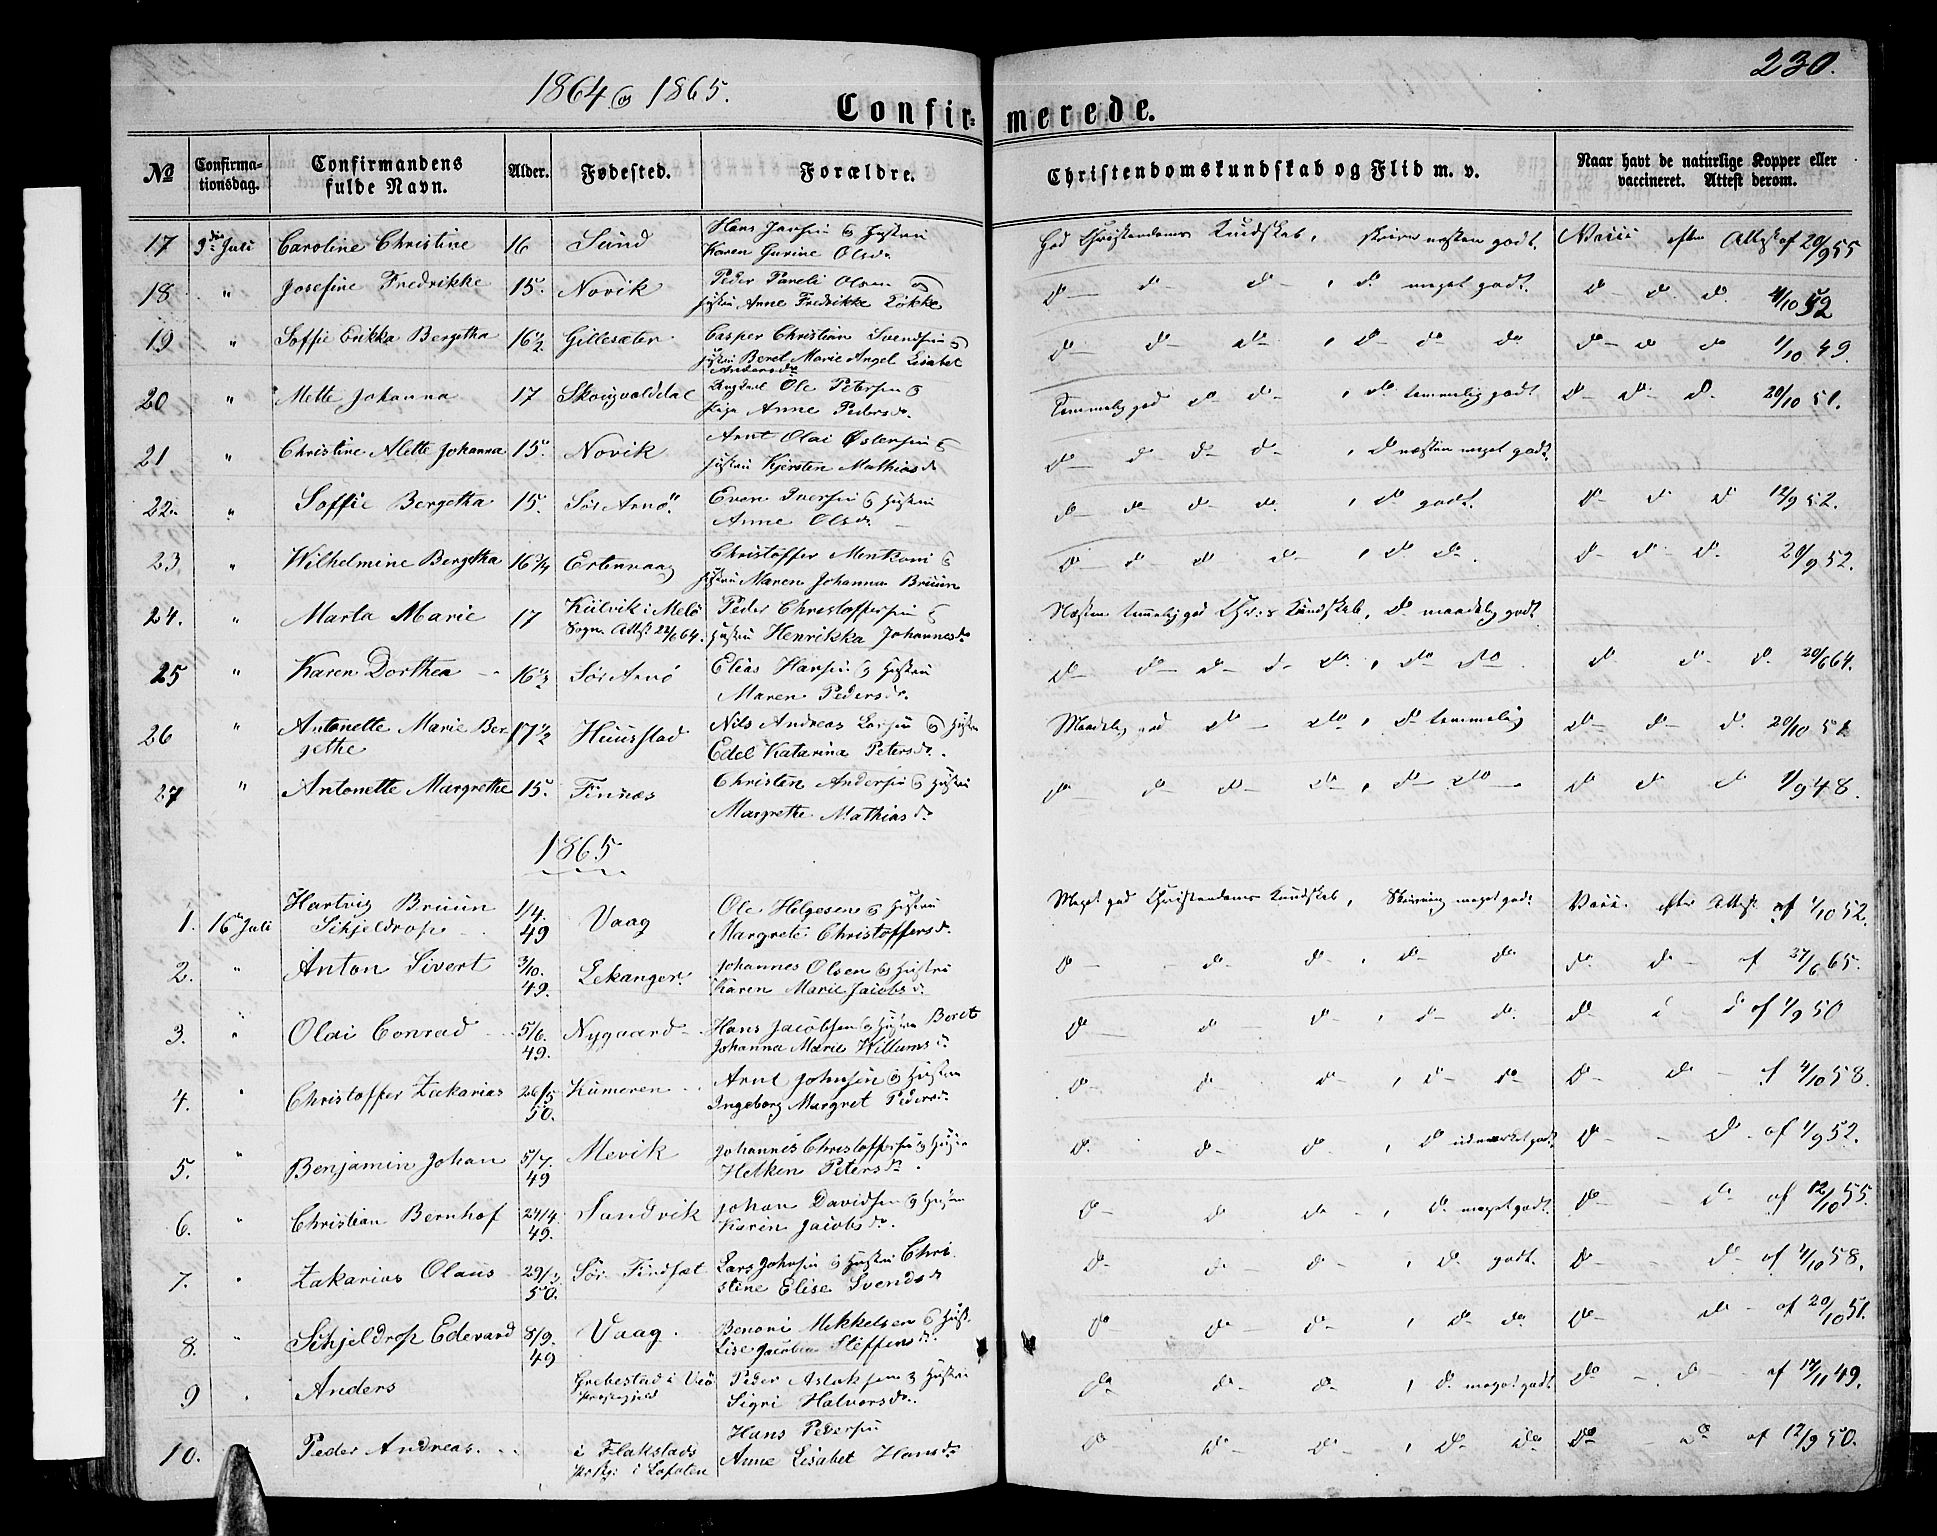 230.
1864 og 1865.
Confir-merede.
No
Confirma-tionsdag.
Confirmandens fulde Navn.
Alder.
Fødested.
Forældre.
Christendomskundskab og Flid m. v.
Naar havt de naturlige Kopper eller vaccineret. Attest derom.
17 9de Juli Caroline Christine 16 Sund Hans Jansen og Hustru Karen Gurine Olsdr. God Christendoms Kundskab, skriver næsten godt. Vacc efter Attest af 20/9 55
18 " Josefine Fredrikke 15. Novik Peder Pareli Olsen og Hustru Anne Fredrikke Løkke do do do, do meget godt. do do do 4/10 52
19 " Soffie Erikka Bergetha 16 1/2 Gillesæter Casper Christian Svendsen og Hustru Beret Marie Angel Lisabet Andersdr do do do, do do do do do do 1/10 49.
20 " Mette Johanna 17 Skougvolddal Ole Petersen og Anne Pedersdr. Temmelig god do do, do temmelig godt do do do 20/10 51.
21 " Christine Alette Johanna 15. Novik Arnt Olai Østensen og Hustru Kjersten Mathiasdr do do do do, do næsten meget godt.
22. " Soffie Bergetha 15. Sør Arnø Even Iversen og Hustru Anne Olsdr do do do do, do godt. do do do 12/9 52.
23 " Wilhelmine Bergetha 16 3/4 Ertenvaag Christoffer Menkoni og Hustru Maren Johanna Bruun do do do do, do do. do do do 20/9 52.
24. " Marta Marie 17 Kilvik i Melø Sogn. Attst 22/6 64. Peder Christoffersen og Hustru Henrikka Johannesdr Næsten temmelig god Chr:s Kundskab, do maadelig godt
25 " Karen Dorthea 16 1/2 Sør Arnø Elias Hansen og Hustru Maren Pedersdr. do do do do do, do do do do do 20/6 64.
26 " Antonette Marie Bergethe 17 1/2 Huusstad Nils Andreas Larsen og Hustru Edel Katarina Petersdr. Maadelig god do do, do temmelig do do do 20/10 51
27 " Antonette Margrethe 15. Finnæs Christen Andersen og Hustru Margrethe Mathiasdr do do do do, do do do do do 1/9 48.
1865
1. 16de Juli Hartvig Bruun Schjeldrop 1/4. 49 Vaag Ole Helgesen og Hustru Margrete Christoffersdr. Meget god Christendoms Kundskab, Skrivning meget godt Vacc. efter Attst af 1/10 52.
2. " Anton Sivert 3/10. 49. Lekanger. Johannes Olsen og Hustru Karen Marie Jacobsdr. do do do, do do do do af 27/6 65.
3. " Olai Conrad 5/6. 49. Nygaard Hans Jacobsen og Hustru Beret Johanna Marie Willumsdr do do do, do do. do do do af 1/9 50
4. " Christoffer Zakarias 26/5 50. Kumeren Arnt Johnsen og Hustru Ingeborg Margret Pedersdr. do do do, do do do do af 4/10 58.
5. " Benjamin Johan 5/7. 49 Mevik Johannes Christoffersen og Hustru Helken Petersdr. do do do, do udmærket godt do do af 1/9 52.
6. " Christian Bernhof 24/4. 49. Sandvik Johan Davidsen og Hustru Karin Jacobsdr. do do do, do meget godt. do do af 12/10 55.
7. " Zakarias Olaus 29/3 50. Sør Findset Lars Johnsen og Hustru Christine Elise Svendsdr do do do, do godt. do do af 4/10 58.
8. " Schjeldrop Edevard 8/9. 49 Vaag. Benoni Mekkelsen og Hustr. Lise Jacobia Steffensdr. do do do, do do. do do af 20/10 51.
9 " Anders Grebestad i Præstegjeld Peder Aslaksen og Hustru Sigri Halvorsdr. do do do, do meget godt do do af 17/11 49.
10. Peder Andreas. i Flakstads Prstgj: i Lofoten Hans Pedersen Anne Lisabet Hansdr do do do, do do do do af 12/9 50.